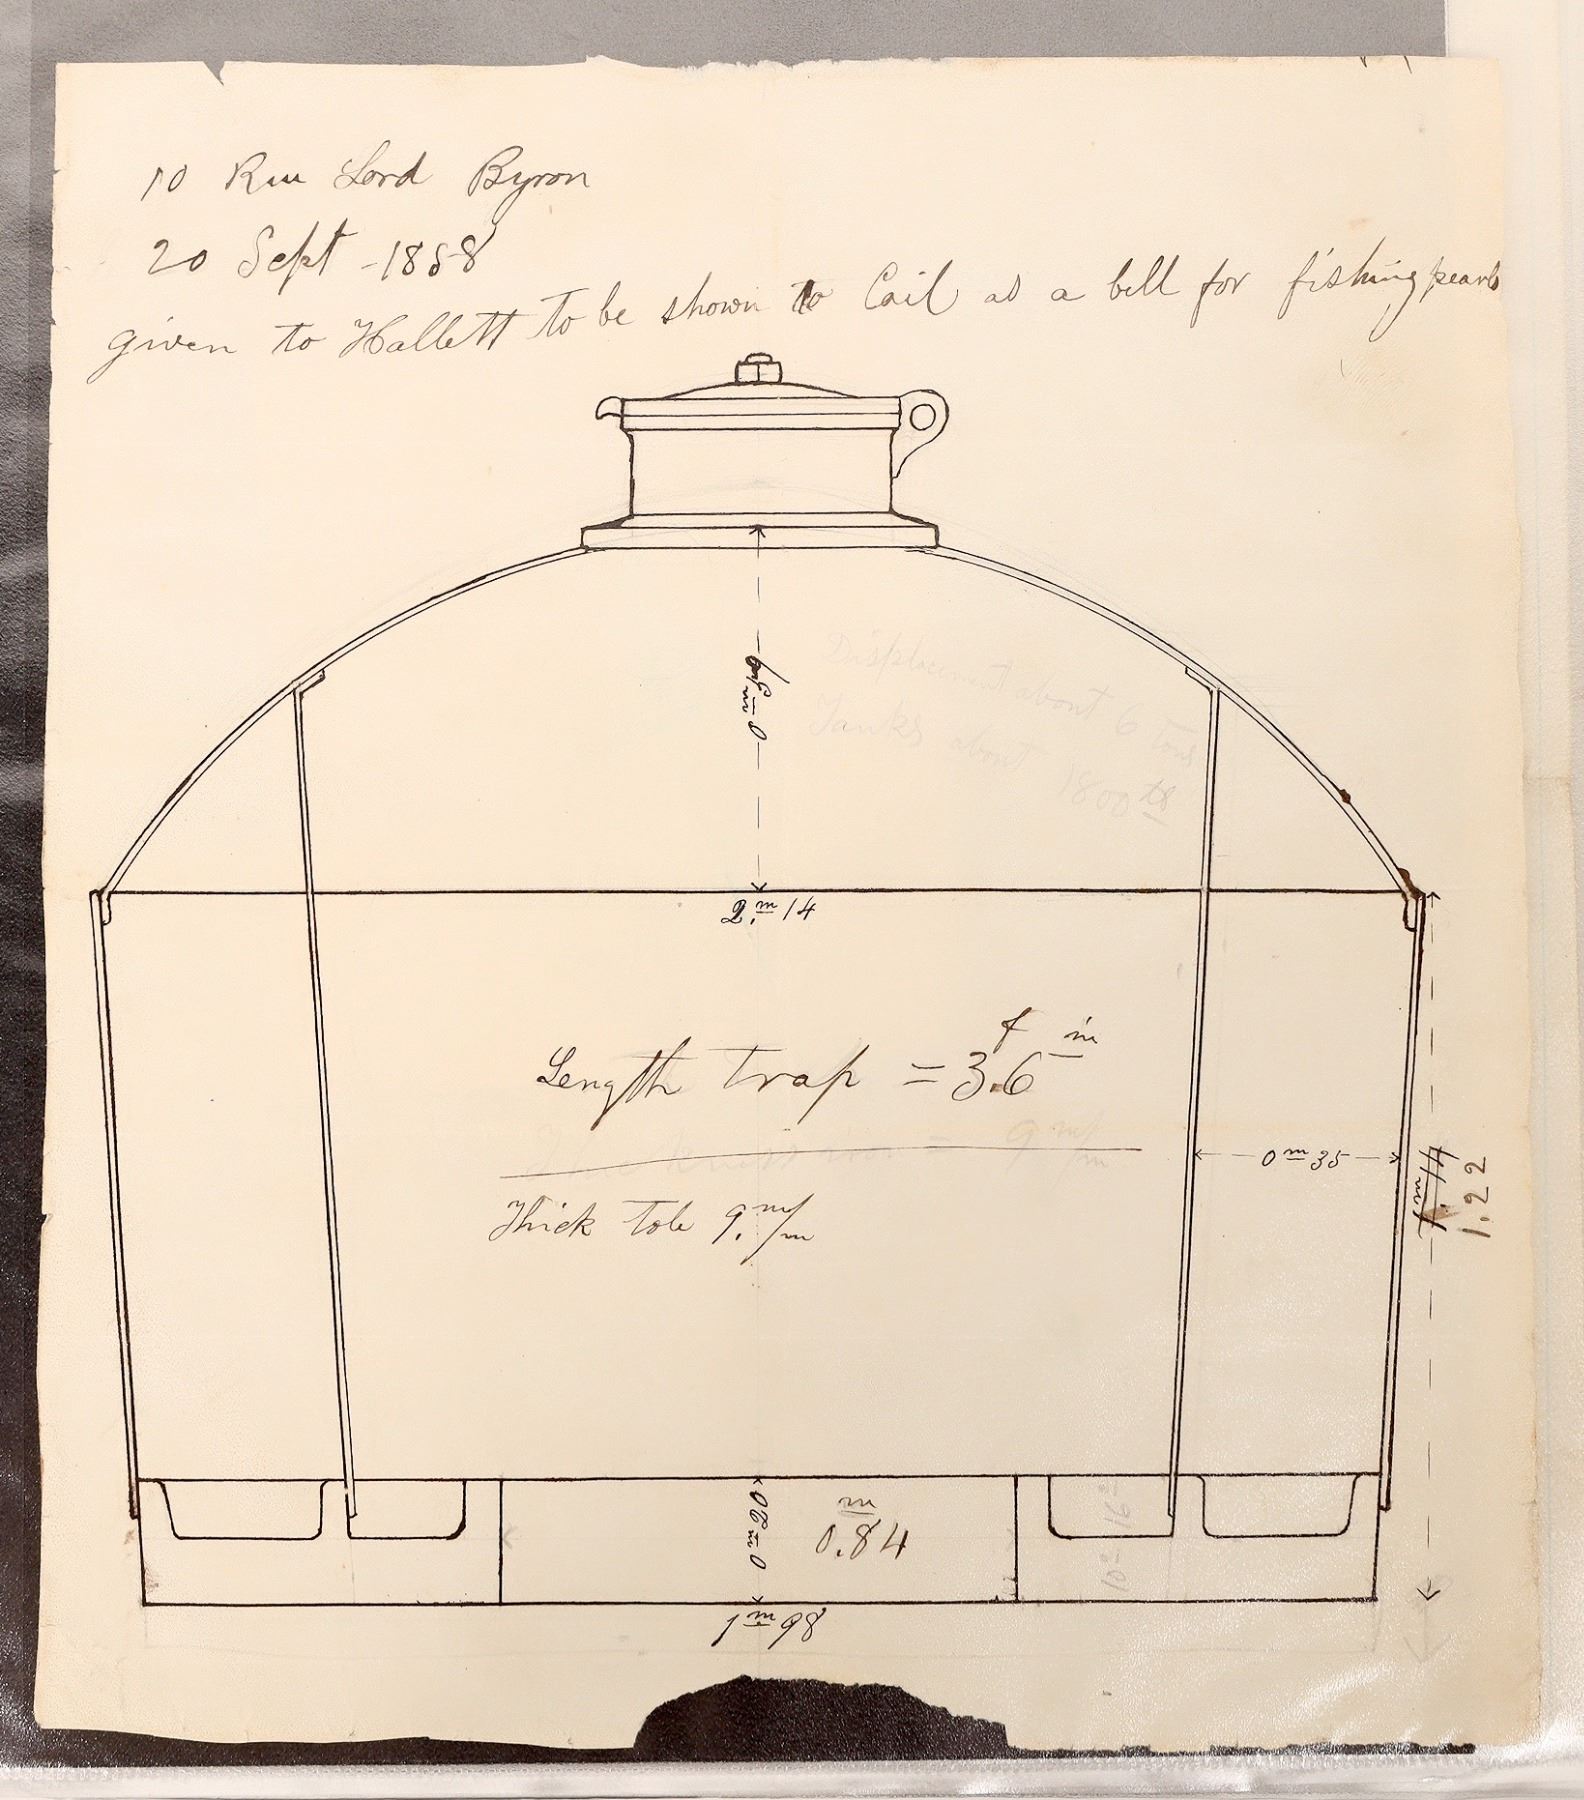 10 Rue Lord Byron
20 Sept - 1858
given to Hallett to be shown to Cail as a bell for fishing pearls
Displacement about 6 tons
Tanks about 1800 lbs
2 m. 14
Length trap = 3.6 f in
= 9 m/m
0 m 35
1.22
Thick tole 9. m/m
0 m 20
m
0.84
1 m 98